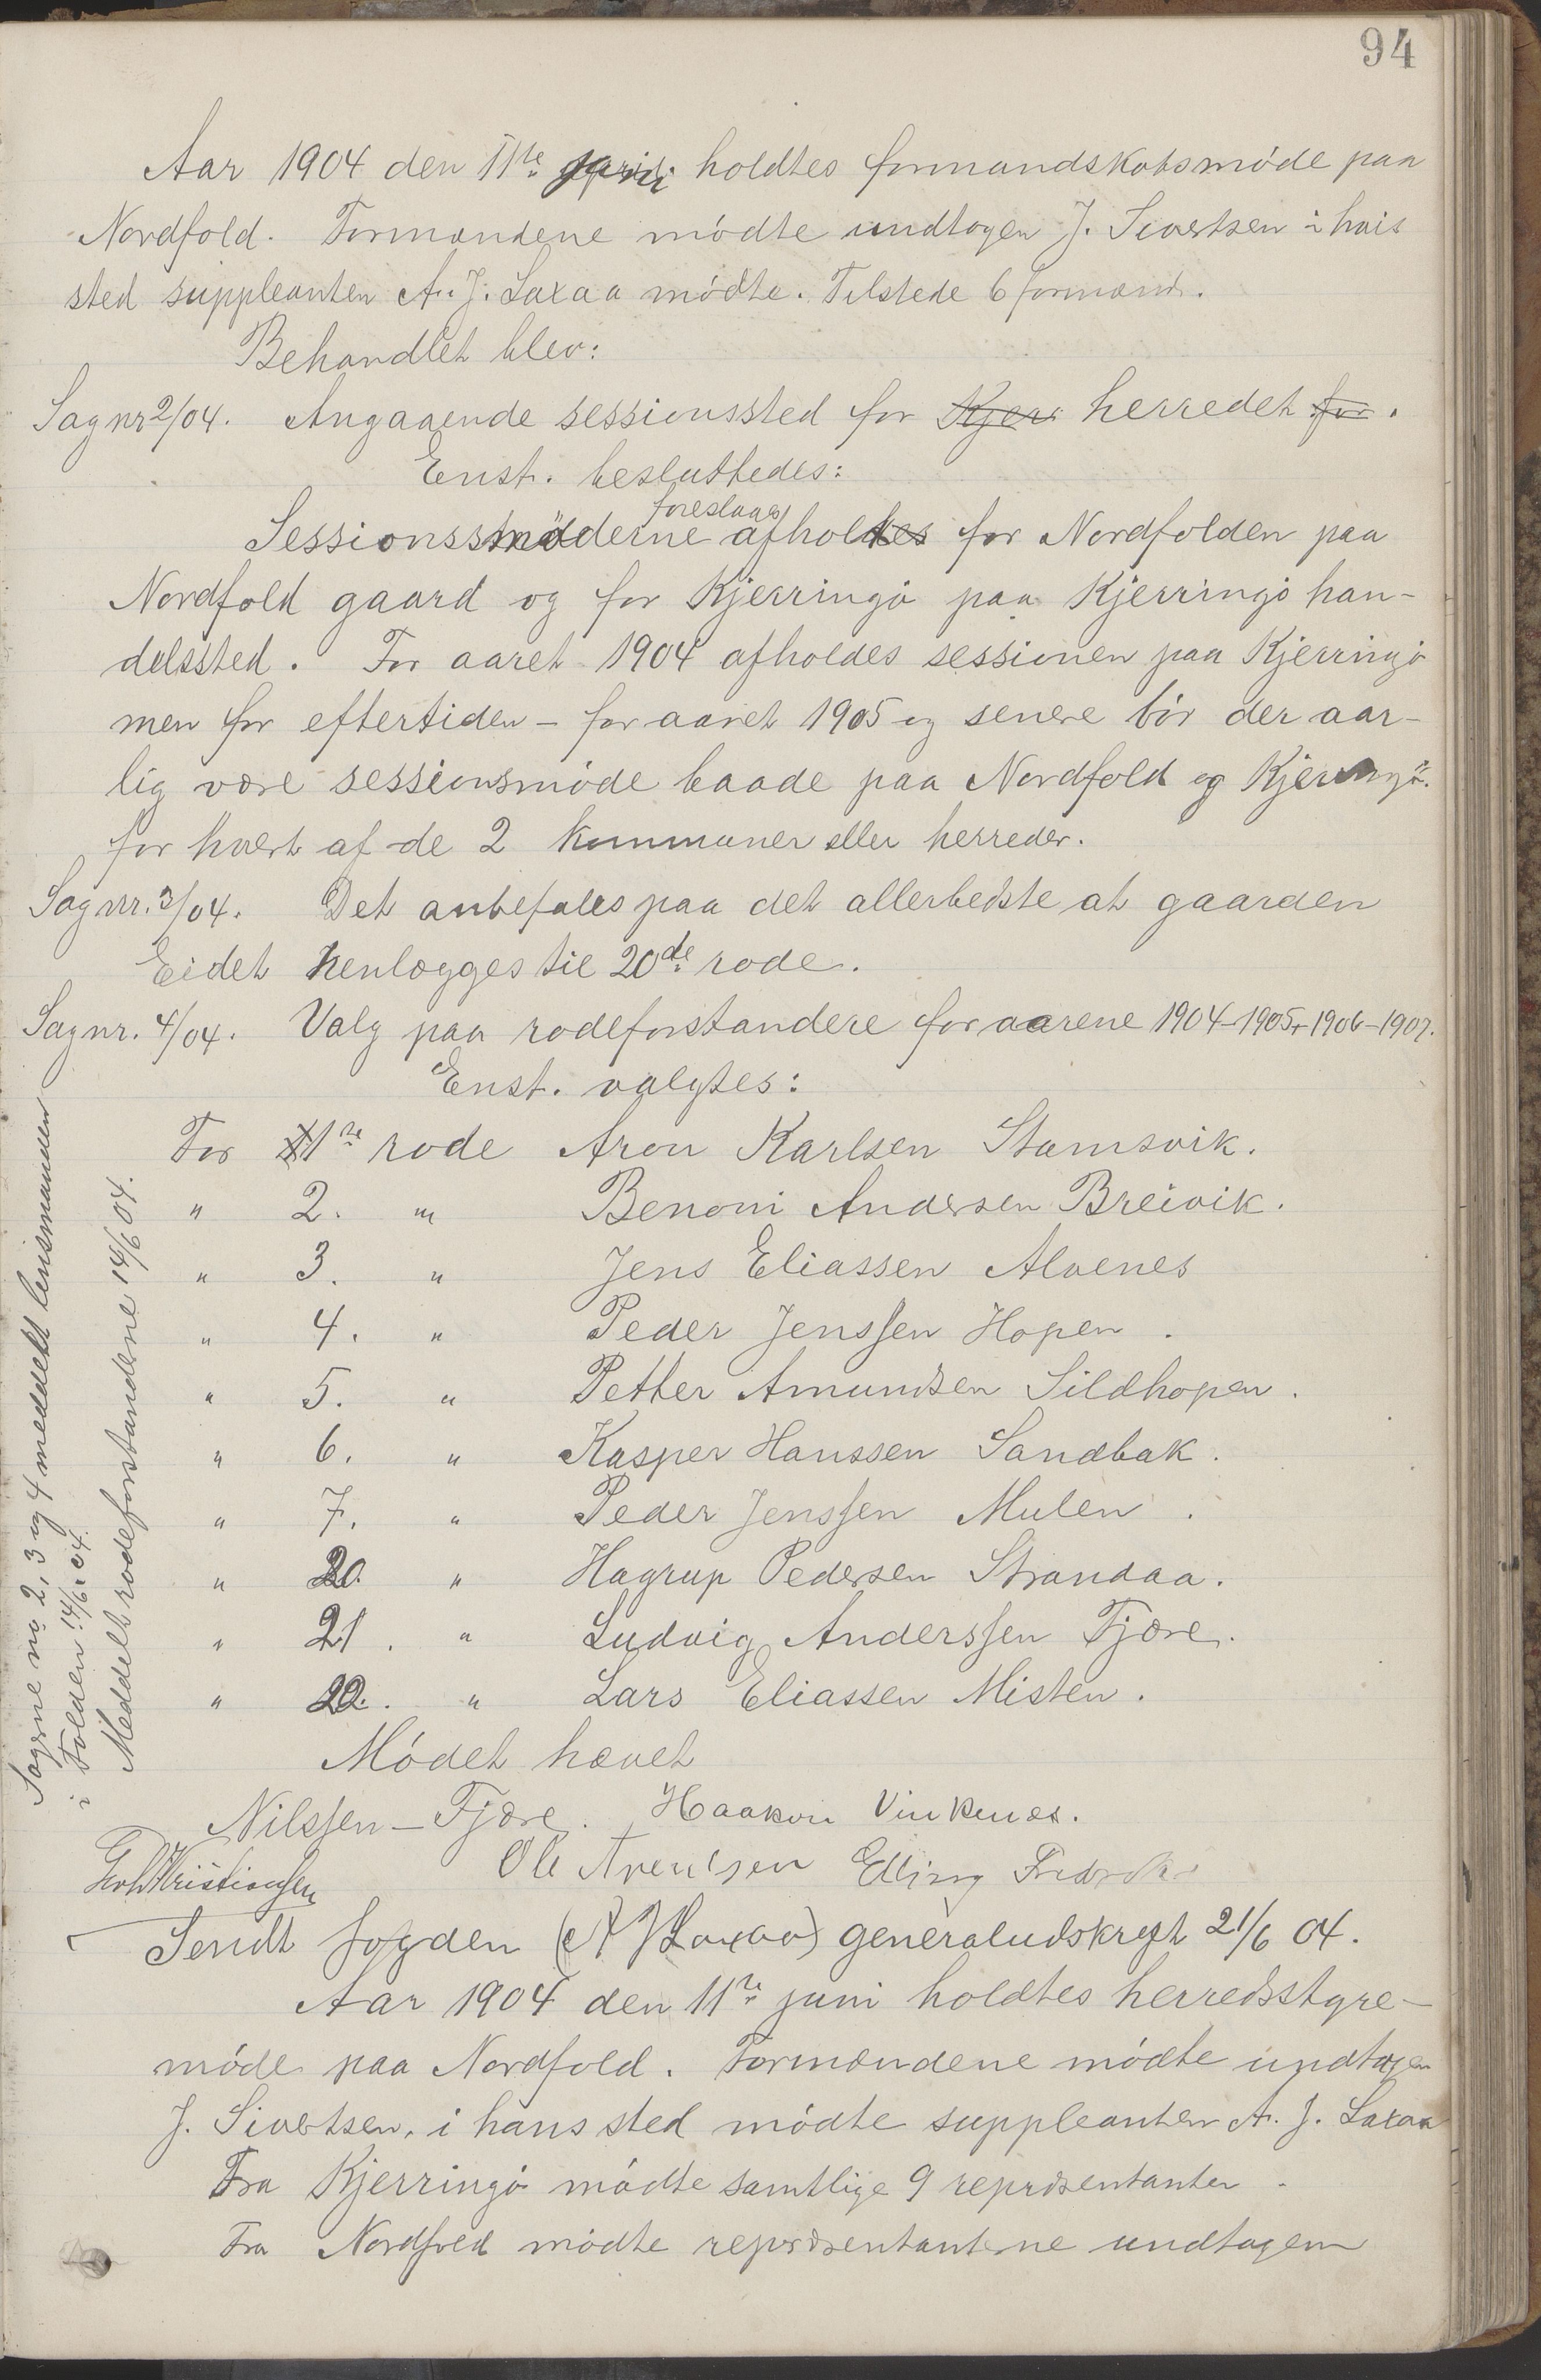 94
Aar 1904 den 11te juni holdtes formandskabsmøde paa
Nordfold. Formændene mødte undtagen J. Sivertsen i hais
sted suppleanten A. J. Laxaa mødte. Tilstede 6 formænd.
Behandlet blev:
Sag nr 2/04. Angaaende sessionssted for Kjerr herredet for.
Enst. besluttedes:
foreslaaes
Sessionsmøderne afholdes for Nordfolden paa
Nordfold gaard og for Kjerringø paa Kjerringø han-
delssted. For aaret 1904 afholdes sessionen paa Kjerringø
men for eftertiden – for aaret 1905 og senere bør der aar-
lig være sessionsmøde baade paa Nordfold og Kjerringø.
for hvert af de 2 kommuner eller herreder.
Sag nr. 3/04. Det anbefales paa det allerbedste at gaarden
Eidet henlægges til 20de rode.
Sag nr. 4/04. Valg paa rodeforstandere for aarene 1904-1905-1906-1907.
Enst. valgtes:
For 1ste rode Aron Karlsen Stamsvik.
" 2. " Benoni Andersen Breivik.
" 3. " Jens Eliassen Alvenes
" 4. " Peder Jenssen Hopen.
" 5. " Petter Amundsen Sildhopen.
" 6. " Kasper Hanssen Sandbak.
" 7. " Peder Jenssen Mulen.
" 20. " Hagrup Pedersen Strandaa.
" 21. " Ludvig Anderssen Fjære.
" 22. " Lars Eliassen Misten.
Mødet hævet
Sagene nr 2, 3 og 4 meddelt lensmanden
i Folden 14/6. 04.
Meddelt rodeforstanderne 14/6 04.
Nilssen – Fjære. Haakon Vinkenes.
Kristiansen Ole Arentsen Elling
Sendt fogden (A J Laxaa) generaludskrift 21/6 04.
Aar 1904 den 11te juni holdtes herredsstyre-
møde paa Nordfold. Formændene mødte undtagen
J. Sivertsen, i hans sted mødte suppleanten A. J. Laxaa
Fra Kjerringø mødte samtlige 9 repræsentanter.
Fra Nordfold mødte repræsentanterne undtagen